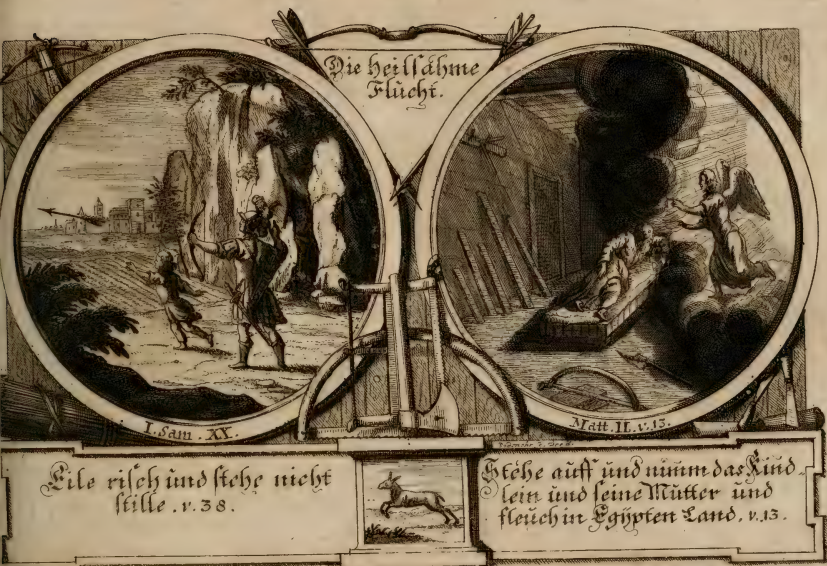 Die Heilsahme
Flucht.
I. Sam. XX.
Matt. II. v. 13.
Eile risch und stehe nicht
stille. v. 38.
Stehe auff und nimm das Kind
lein und seine Mutter und
fleuch in Egÿpten Land. v. 13.